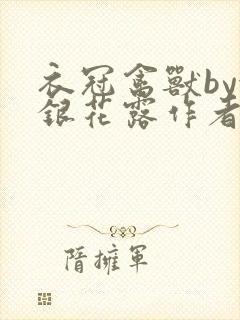 衣冠禽獸by
銀花露作者
隋擁軍